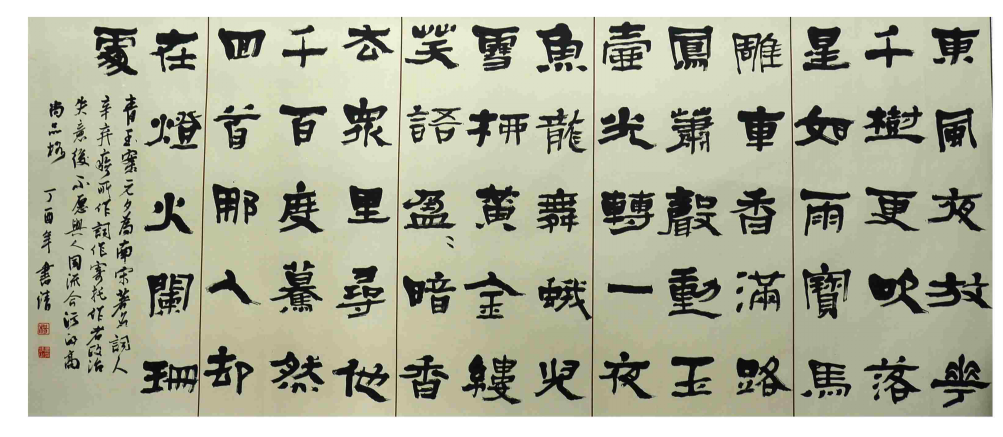 東風夜放華
千樹更吹落
星如雨寶馬
雕車香滿路
鳳簫聲動玉
壺光轉一夜
魚龍舞蛾兒
雪柳黃金縷
笑語盈〻暗香
去衆里尋他
千百度驀然
回首那人却
在燈火闌珊
處
青玉案元夕為南宋著名詞人
辛弃疾所作詞作寄托作者政治
失意後不愿與人同流合污的高
尚品格 丁酉年書清